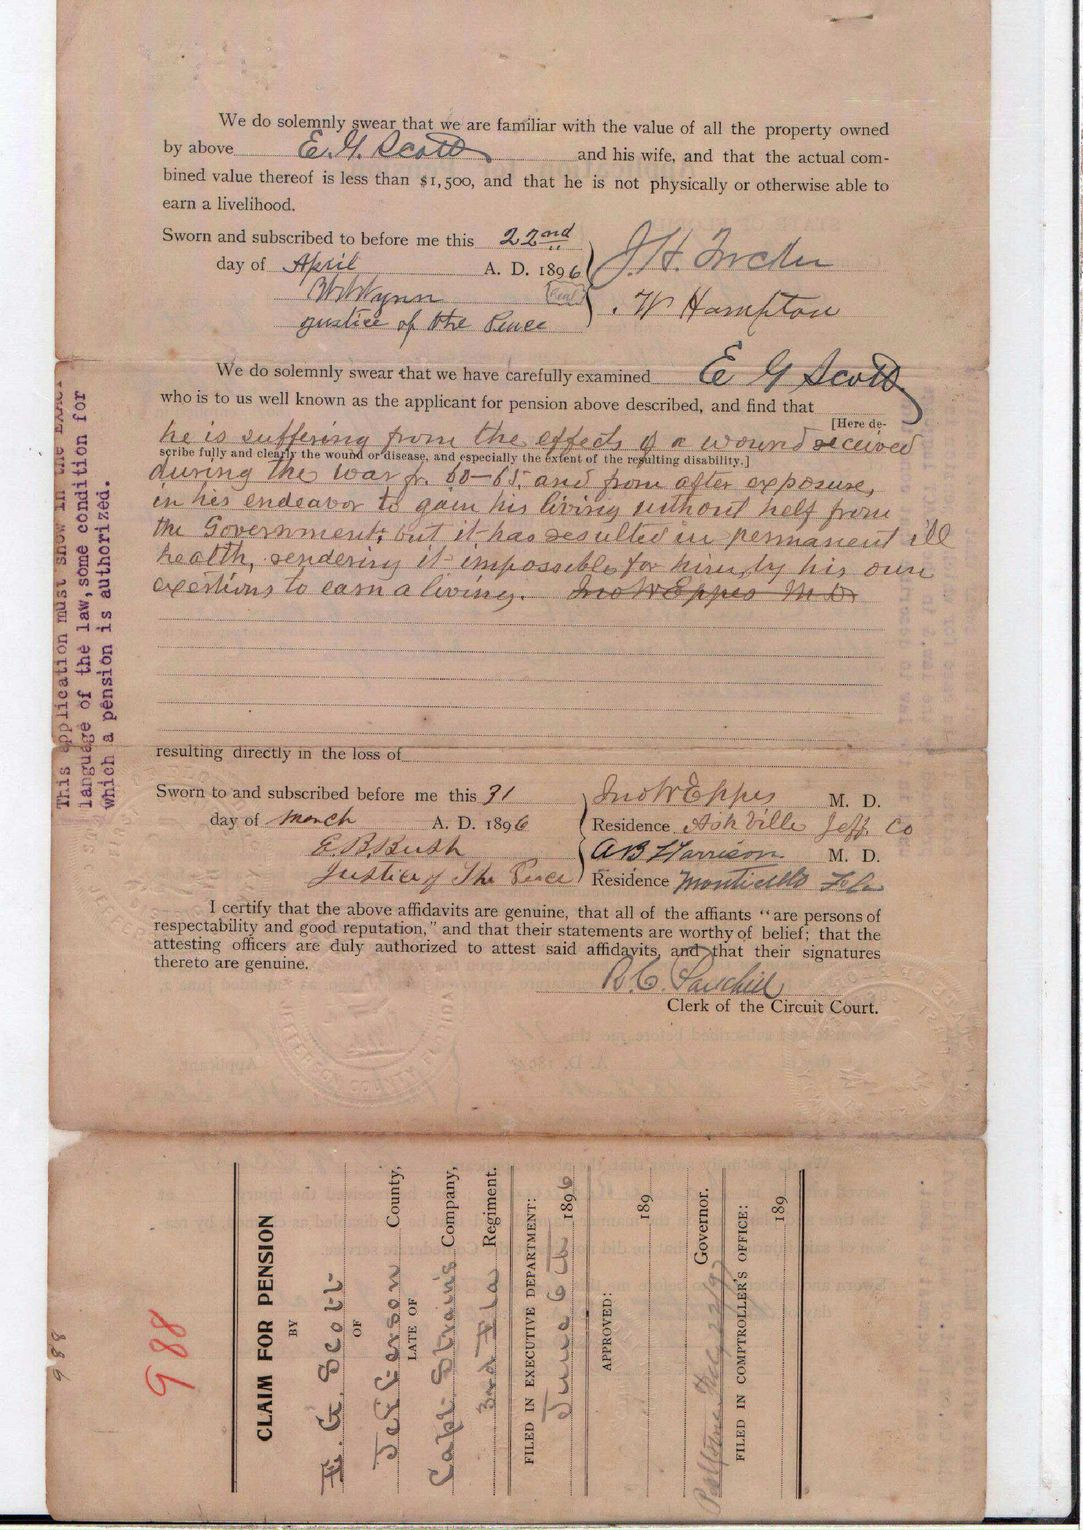 We do solemnly swear that we are familiar with the value of all the property owned
by above E. G. Scott and his wife, and that the actual com-
bined value thereof is less than $1,500, and that he is not physically or otherwise able to
earn a livelihood.
Sworn and subscribed to before me this 22nd
day of April A. D. 1896
J. H.
Wynn
Seal
W Hampton
Justice of the Peace
We do solemnly swear that we have carefully examined E G Scott
who is to us well known as the applicant for pension above described, and find that
[Here de-
he is suffering from the effects of a wound received
scribe fully and clearly the wound or disease, and especially the extent of the resulting disability.]
during the war fr. 60-65. and from after exposure,
in his endeavor to gain his living without help from
the Government; but it has resulted in permanent ill
health, rendering it impossible for him, by his own
exertions to earn a living. Jno W Eppes M. D.
resulting directly in the loss of
Sworn to and subscribed before me this 31
day of March A. D. 1896
E. B. Bush
Justice of The Peace
Jno W Eppes M. D.
Residence Ashville Jeff. Co
A B Harrison M. D.
Residence Monticello Fla
I certify that the above affidavits are genuine, that all of the affiants "are persons of
respectability and good reputation," and that their statements are worthy of belief; that the
attesting officers are duly authorized to attest said affidavits, and that their signatures
thereto are genuine.
Clerk of the Circuit Court.
This application must show in the EXACT
language of the law, some condition for
which a pension is authorized.
988
988
CLAIM FOR PENSION
BY
E. G. Scott
OF
Jefferson County,
LATE OF
Capt. Strain's Company,
3rd Fla Regiment.
FILED IN EXECUTIVE DEPARTMENT:
June 6th 1896
APPROVED:
189
Governor.
FILED IN COMPTROLLER'S OFFICE:
189